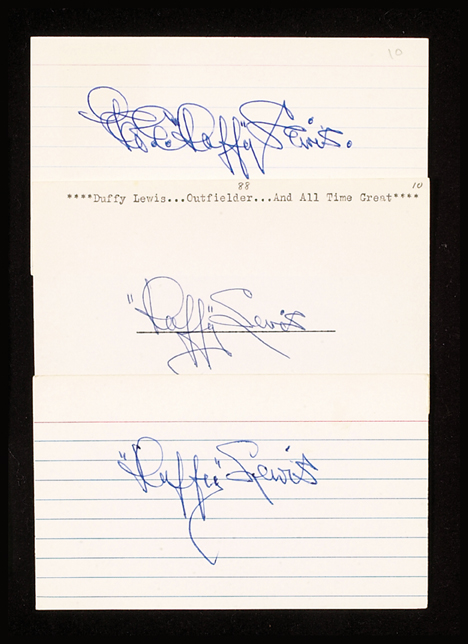 10
Geo. E. "Duffy" Lewis.
88 10
****Duffy Lewis...Outfielder...And All Time Great****
"Duffy" Lewis
"Duffy" Lewis